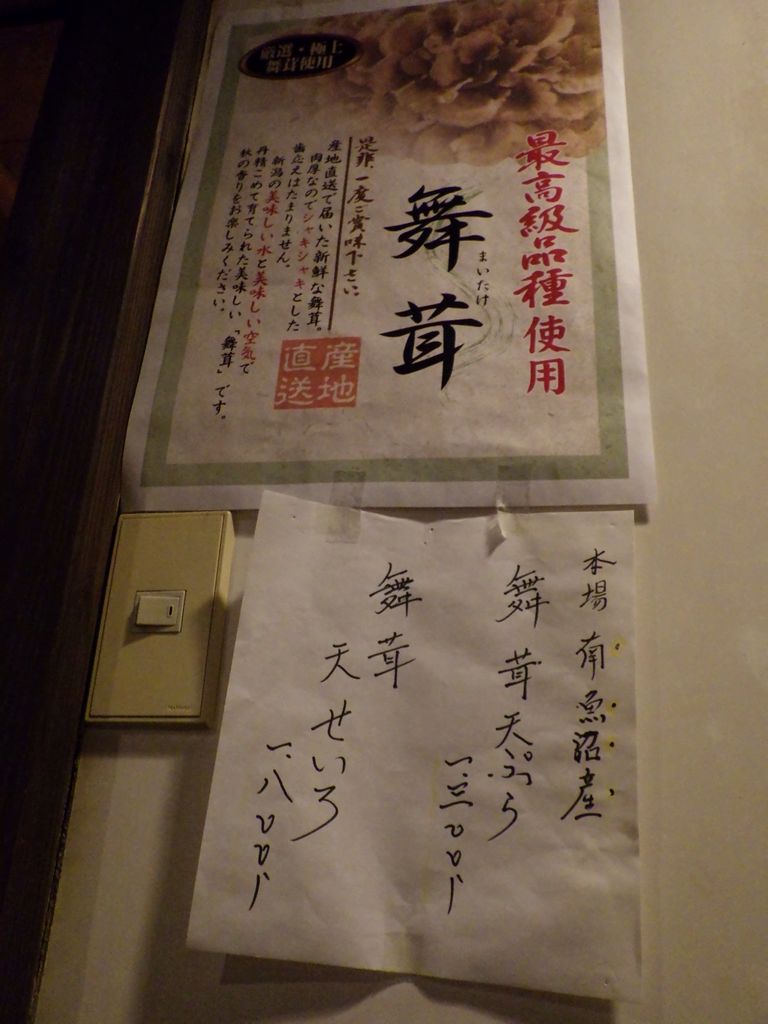 厳選・極上
舞茸使用
最高級品種使用
舞茸
まいたけ
是非、一度ご賞味下さい
産地直送で届いた新鮮な舞茸。
肉厚なのでシャキシャキとした
歯応えはたまりません。
新潟の美味しい水と美味しい空気で
丹精こめて育てられた美味しい「舞茸」です。
秋の香りをお楽しみください。
産地
直送
本場 南魚沼産
舞茸天ぷら
一.三〇〇円
舞茸
天せいろ
一.八〇〇円